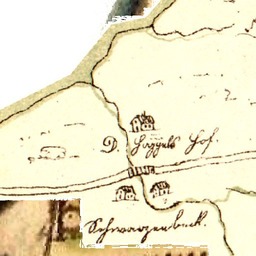 D. Häggels Hof.
Schwarzenbeck.